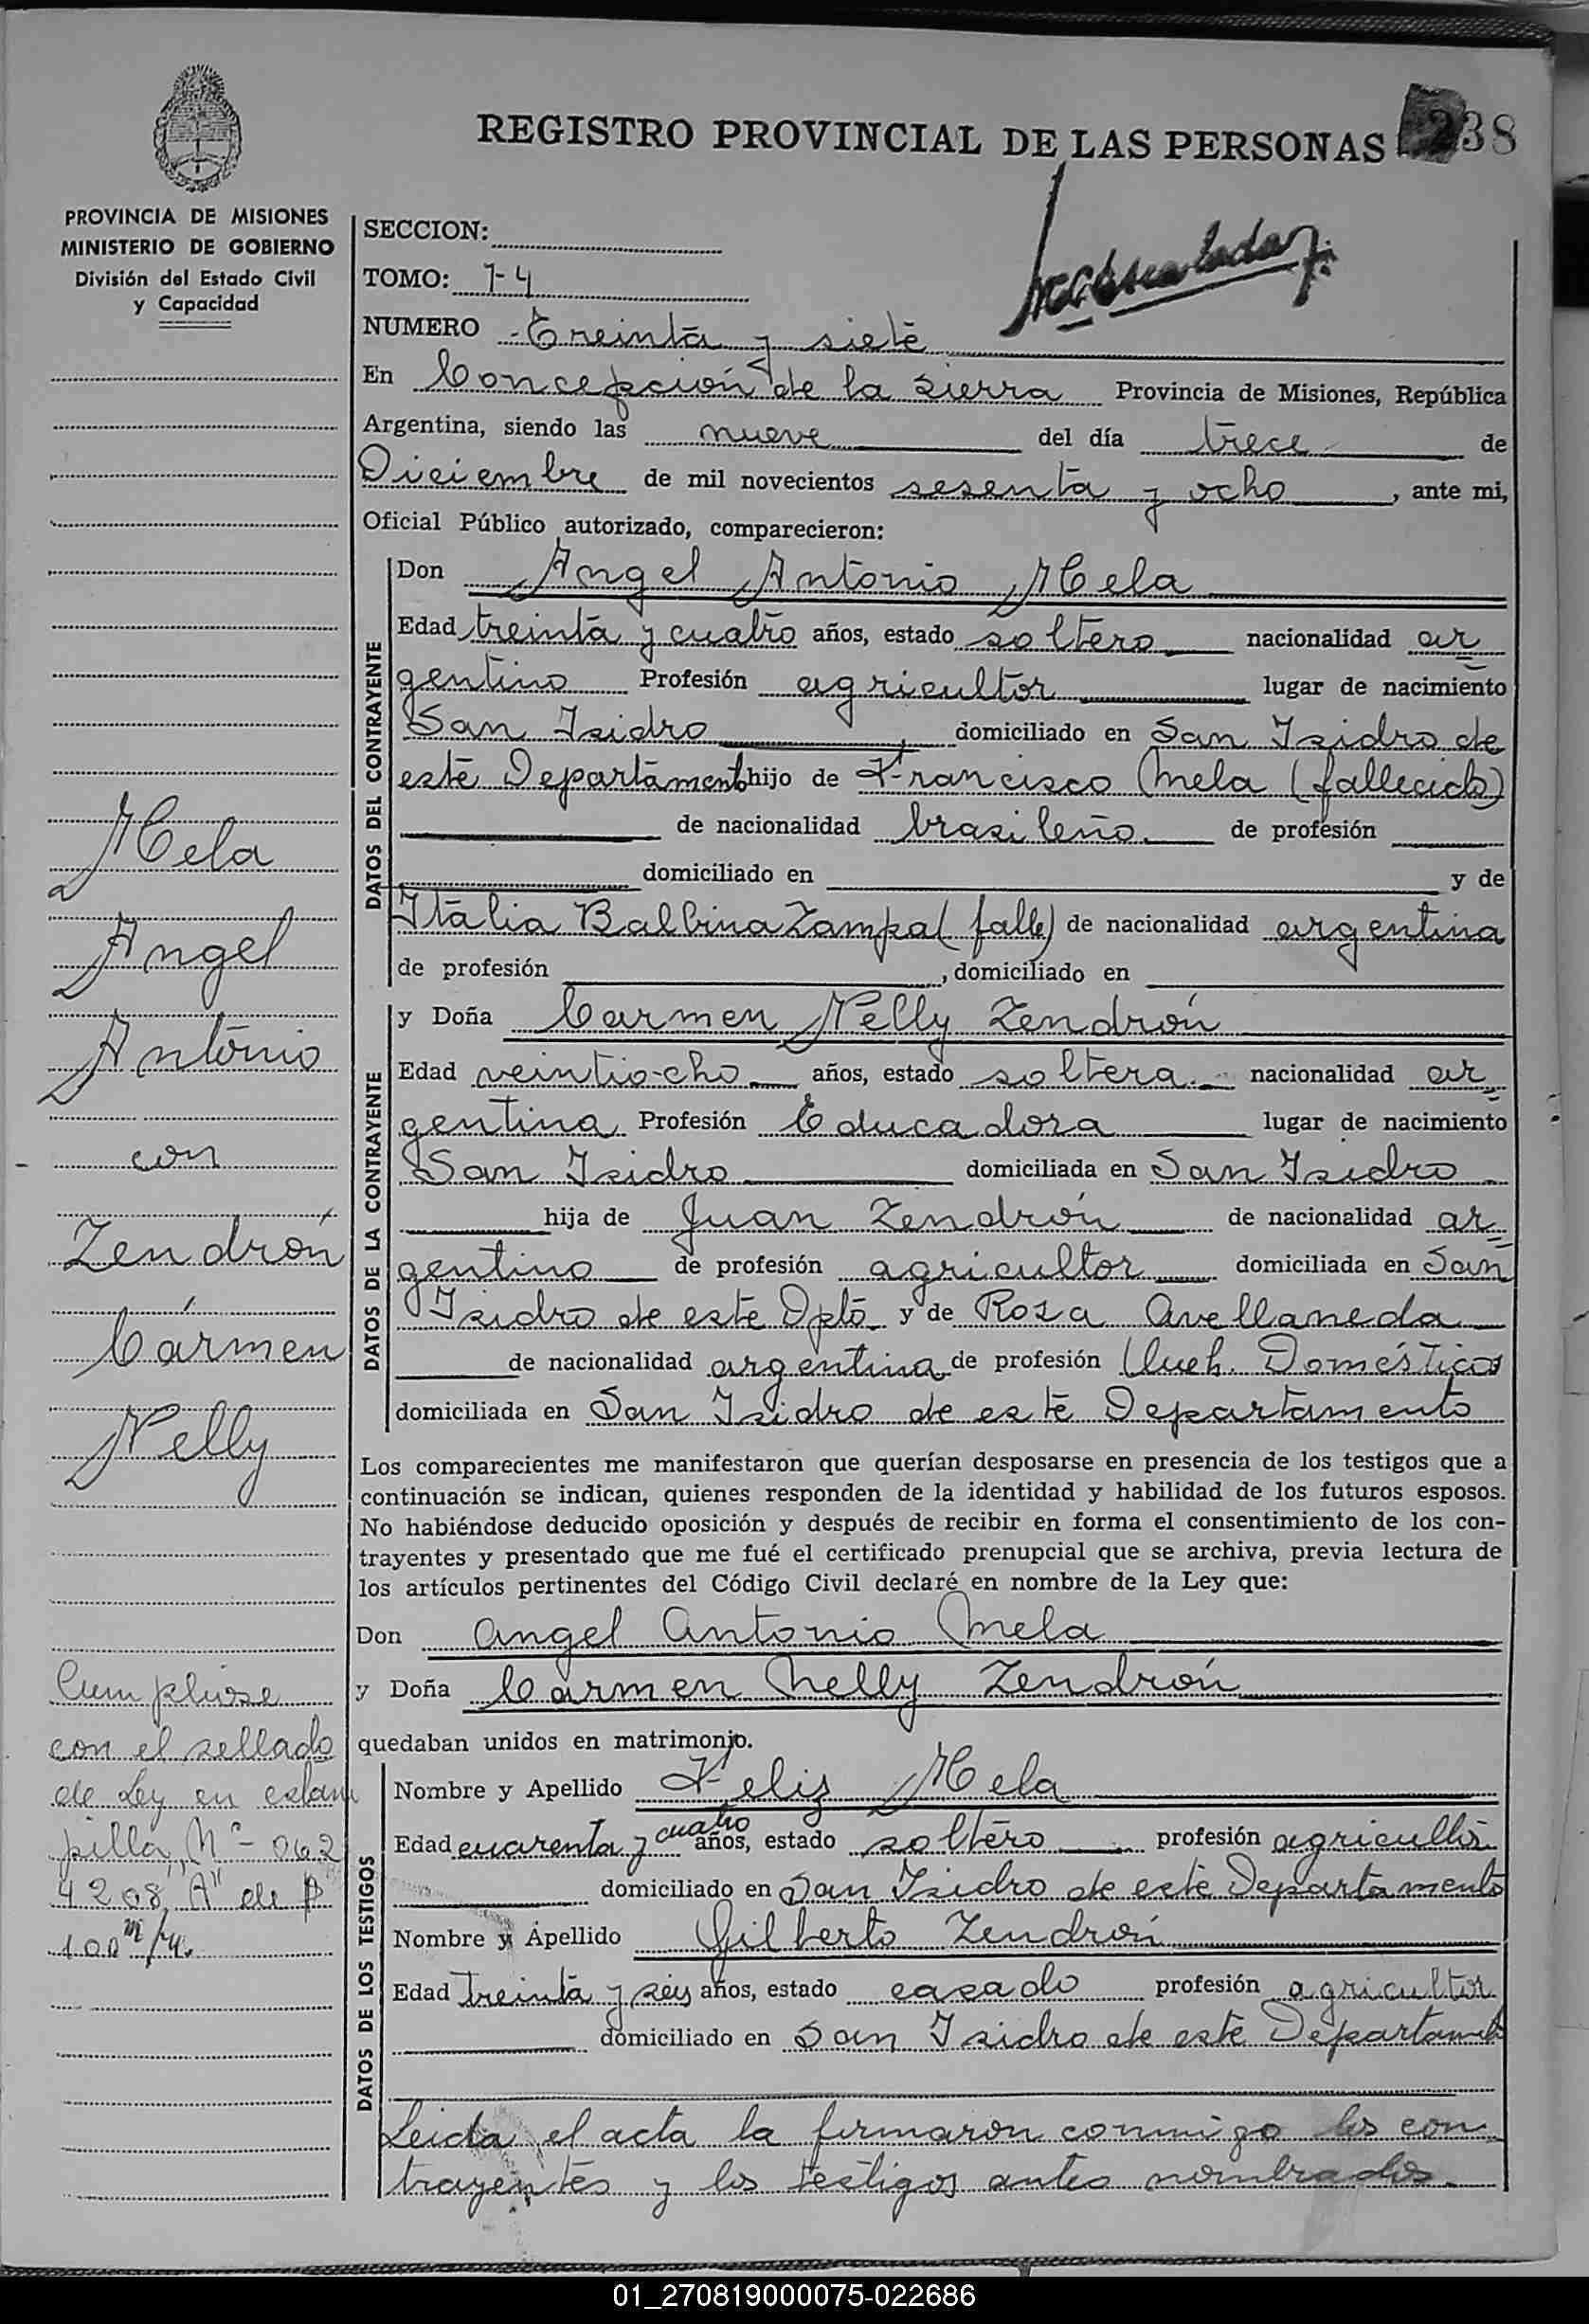 REGISTRO PROVINCIAL DE LAS PERSONAS 238
PROVINCIA DE MISIONES
MINISTERIO DE GOBIERNO
División del Estado Civil
y Capacidad
Mela
Angel
Antonio
con
Zendrón
Cármen
Nelly
Cumplióse
con el sellado
de Ley en estam
pilla, Nº- 062
4208 "A" de $
100 m/n.
SECCION:
TOMO: 1-4
NUMERO - Treinta y siete
En Concepción de la Sierra Provincia de Misiones, República
Argentina, siendo las nueve del día trece de
Diciembre de mil novecientos sesenta y ocho, ante mi,
Oficial Público autorizado, comparecieron:
DATOS DEL CONTRAYENTE
Don Angel Antonio Mela
Edad treinta y cuatro años, estado soltero nacionalidad ar
gentino Profesión agricultor lugar de nacimiento
San Isidro, domiciliado en San Isidro de
este Departamento hijo de Francisco Mela (fallecido)
de nacionalidad brasileño de profesión
domiciliado en y de
Itália Balbina Zampa (falle) de nacionalidad argentina
de profesión , domiciliado en
DATOS DE LA CONTRAYENTE
y Doña Carmen Nelly Zendrón
Edad veintiocho años, estado soltera. nacionalidad ar
gentina Profesión Educadora lugar de nacimiento
San Isidro domiciliada en San Isidro
hija de Juan Zendrón de nacionalidad ar
gentino de profesión agricultor domiciliada en San
Isidro de este Dpto y de Rosa Avellaneda
de nacionalidad argentina de profesión Queh. Domésticos
domiciliada en San Isidro de este Departamento
Los comparecientes me manifestaron que querían desposarse en presencia de los testigos que a
continuación se indican, quienes responden de la identidad y habilidad de los futuros esposos.
No habiéndose deducido oposición y después de recibir en forma el consentimiento de los con-
trayentes y presentado que me fué el certificado prenupcial que se archiva, previa lectura de
los artículos pertinentes del Código Civil declaré en nombre de la Ley que:
Don Angel Antonio Mela
y Doña Carmen Nelly Zendrón
quedaban unidos en matrimonio.
DATOS DE LOS TESTIGOS
Nombre y Apellido Feliz Mela
Edad cuarenta y cuatro años, estado soltero profesión agricultor
domiciliado en San Isidro de este Departamento
Nombre y Apellido Gilberto Zendrón
Edad treinta y seis años, estado casado profesión agricultor
domiciliado en San Isidro de este Departamento
Leida el acta la firmaron conmigo los con
trayentes y los testigos antes nombrados.
01_270819000075-022686